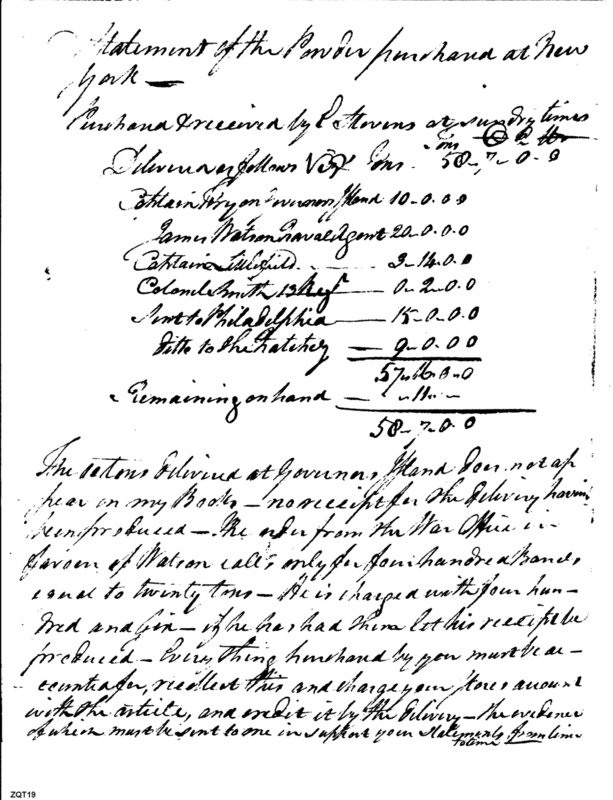 Statement of the Powder purchased at New
York —
Purchased & received by E Stevens at sundry times
Tons
Delivered as follows Viz Tons. 58-7-0-0
Captain Fryon Governors Island 10-0.00
James Watson Naval Agent 20-0.0.0
Captain Littlefield — 3-14.0.0
Colonel Smith 13 Regt — 0-2-0.0
Sent to Philadelphia — 15-0-0.0
Ditto to the Natchez — 9-0.00
57-16-0-0
Remaining on hand — -11--
58-7-0.0
The 10 tons delivered at Governors Island does not ap
pear in my Books — no receipt for the delivery having
been produced — The order from the War Office in
favour of Watson calls only for four hundred Barrels
equal to twenty tons — He is charged with four hun-
dred and six — if he has had them let his receipt be
produced — Every thing purchased by you must be ac-
counted for, recollect this and charge your stores account
with the article, and credit it by the delivery — the evidence
of which must be sent to me in support your statements from time
to time
ZQT19